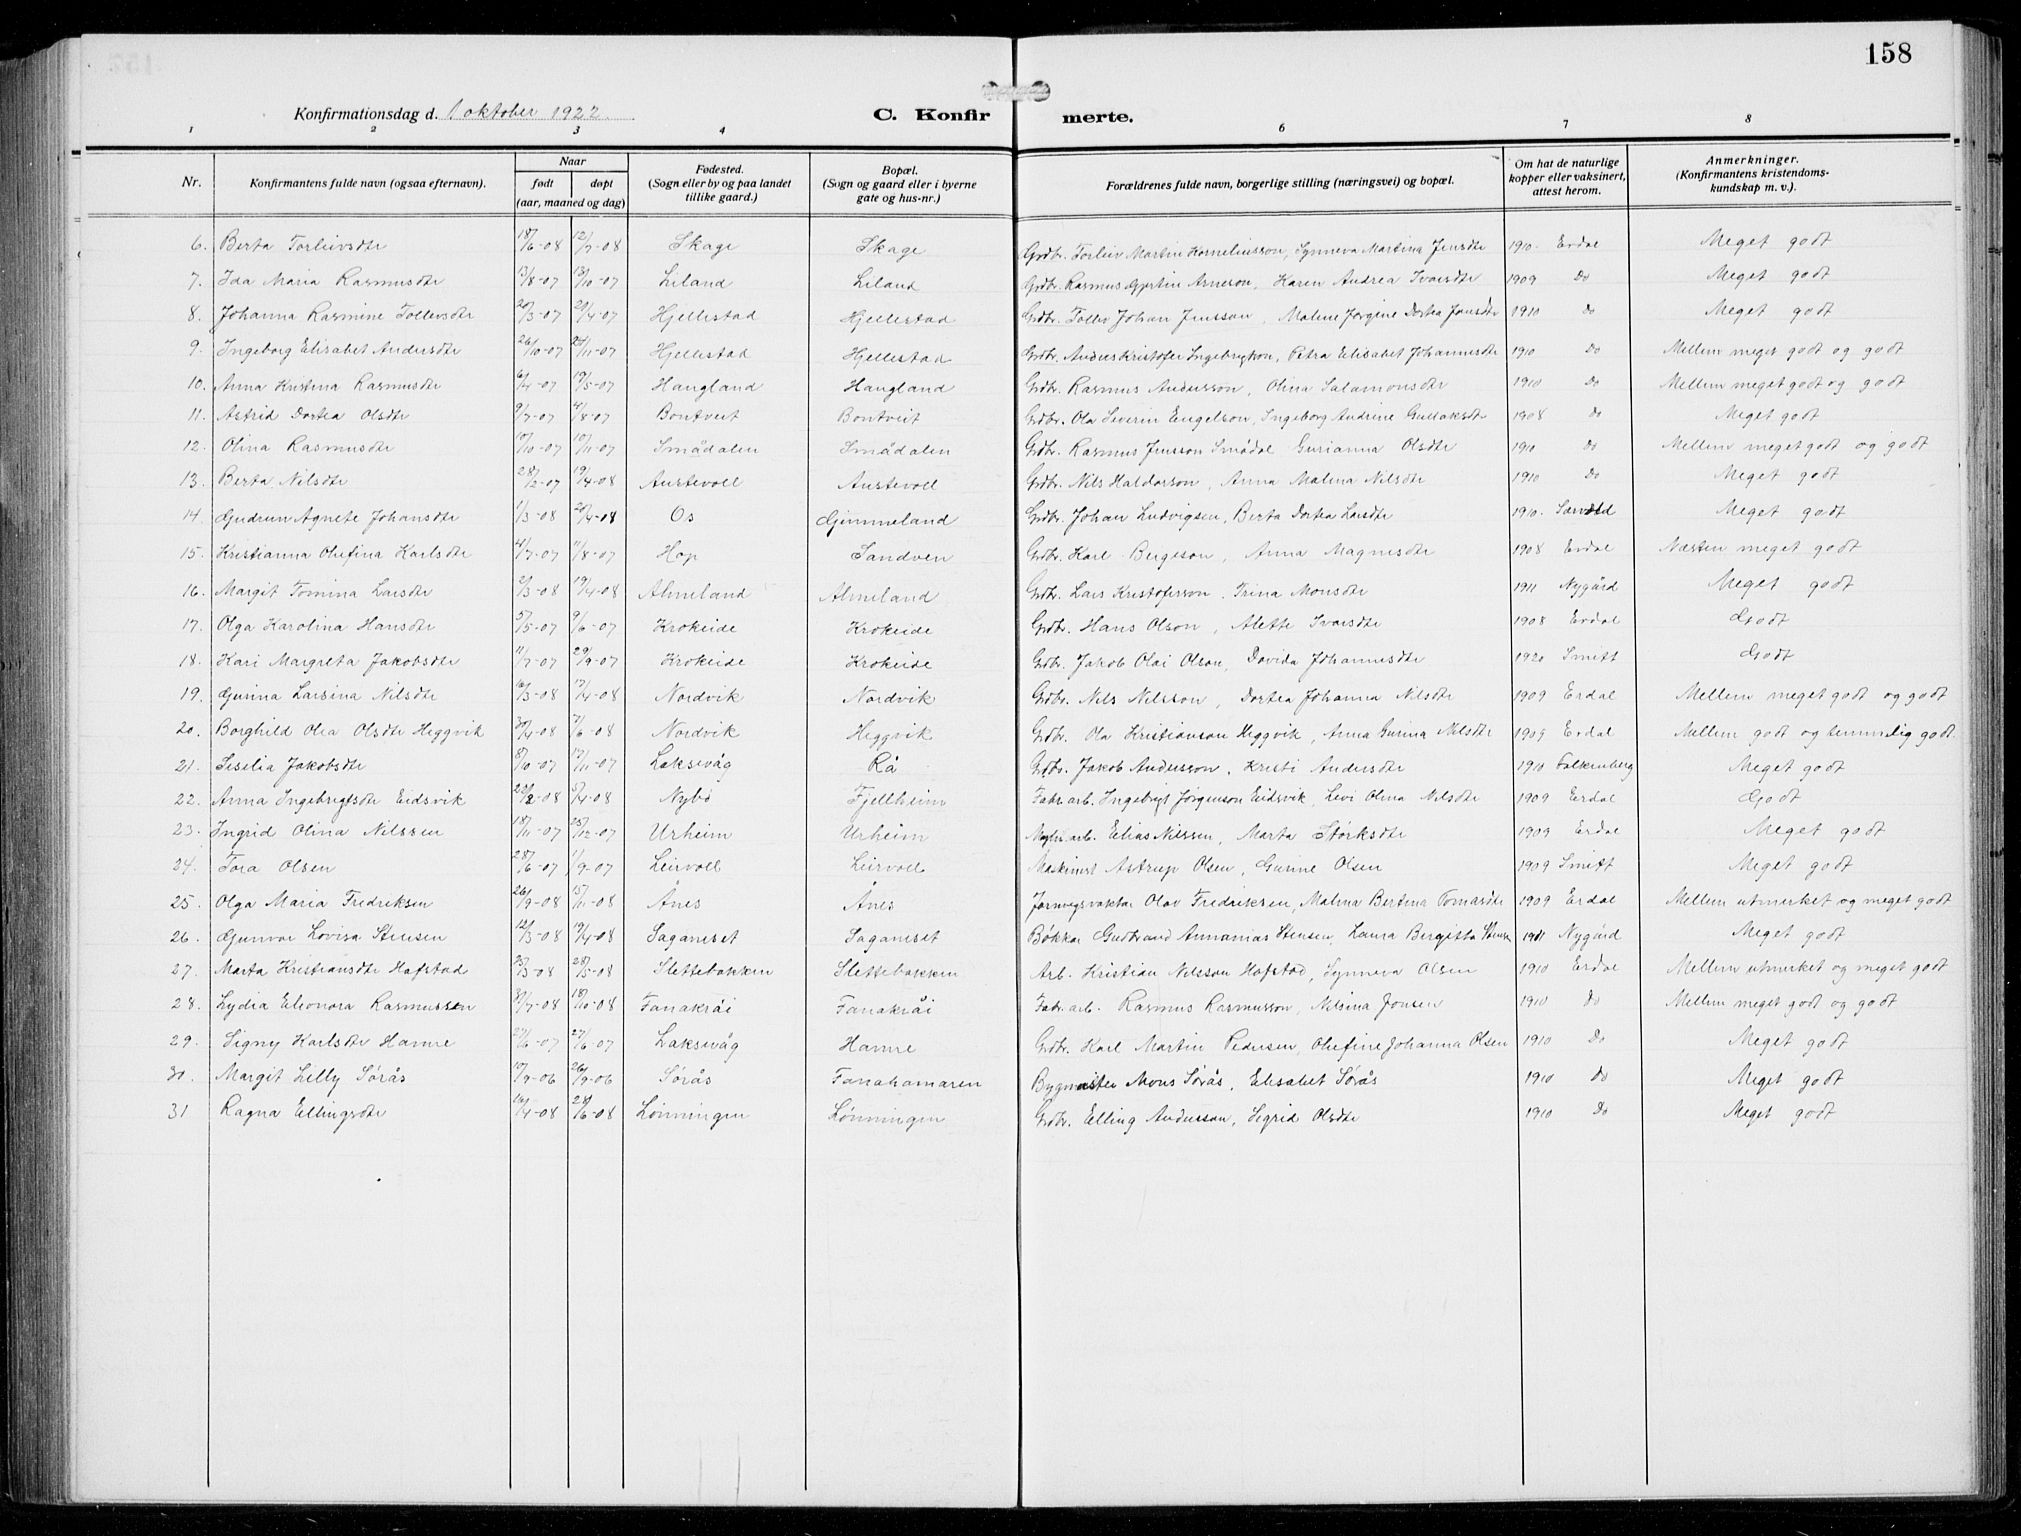 158
Konfirmationsdag d. 1 oktober 1922. C. Konfirmerte.
1 2 3 4 6 7 8
Nr. Konfirmantens fulde navn (ogsaa efternavn). Naar født døpt (aar, maaned og dag) Fødested. (Sogn eller by og paa landet tillike gaard.) Bopæl. (Sogn og gaard eller i byerne gate og hus-nr.) Forældrenes fulde navn, borgerlige stilling (næringsvei) og bopæl. Om hat de naturlige kopper eller vaksinert, attest herom. Anmerkninger. (Konfirmantens kristendomskundskap m. v.).
6. Berta Torleivsdtr 18/6-08 12/7-08 Skage Skage Grdbr. Torleiv Martin Korneliusson, Synneva Martina Jensdtr 1910. Erdal Meget godt
7. Ida Maria Rasmusdtr 13/8-07 13/10-07 Liland Liland Grdbr. Rasmus Gjertin Arneson, Karen Andrea Ivarsdtr 1909 Do Meget godt
8. Johanna Rasmine Tollevsdtr 20/3-07 29/4-07 Hjellestad Hjellestad Grdbr. Tollev Johan Jensson, Malene Jørgine Dortea Jonsdtr 1910 Do Meget godt
9. Ingeborg Elisabet Andersdtr 26/10-07 24/11-07 Hjellestad Hjellestad Grdbr. Anders Kristofer Ingebrigtson, Petra Elisabet Johannesdtr 1910 Do Mellem meget godt og godt
10. Anna Kristina Rasmusdtr 6/4-07 19/5-07 Haugland Haugland Grdbr. Rasmus Andersson, Olina Salamonsdtr 1910 Do Mellem meget godt og godt
11. Astrid Dortea Olsdtr 9/7-07 4/8-07 Bontveit Bontveit Grdbr. Ola Severin Engelson, Ingeborg Andrine Gullaksdtr 1908 Do Meget godt
12. Olina Rasmusdtr 10/10-07 10/11-07 Smådalen Smådalen Grdbr. Rasmus Jensson Smådal Gurianna Olsdtr 1910 Do Mellem meget godt og godt
13. Berta Nilsdtr 28/2-07 19/4-08 Austevoll Austevoll Grdbr. Nils Haldorson, Anna Malena Nilsdtr 1910 Do Meget godt
14. Gudrun Agnete Johansdtr 1/3-08 20/4-08 Os Gjimmeland Grdbr. Johan Ludvigsen, Berta Dortea Larsdtr 1910. Meget godt
15. Kristianna Olufina Karlsdtr 4/7-07 11/8-07 Hop Sandven Grdbr. Karl Bergeson, Anna Magnesdtr 1908 Erdal Næsten meget godt
16. Margit Tomina Larsdtr 2/3-08 19/4-08 Ålmeland Ålmeland Grdbr. Lars Kristoferson, Trina Monsdtr 1911 Nygård Meget godt
17. Olga Karolina Hansdtr 5/5-07 9/6-07 Krokeide Krokeide Grdbr. Hans Olson, Alette Ivarsdtr 1908 Erdal Godt
18. Kari Margreta Jakobsdtr 11/7-07 29/9-07 Krokeide Krokeide Grdbr. Jakob Olai Olson, Davida Johannesdtr 1920 Smitt Godt
19. Gurina Larsina Nilsdtr 16/3-08 17/4-08 Nordvik Nordvik Grdbr. Nils Nilsson, Dortea Johanna Nilsdtr 1909 Erdal Mellem meget godt og godt
20. Borghild Olea Olsdtr Heggvik 30/4-08 7/6-08 Nordvik Heggvik Grdbr. Ola Kristianson Heggvik, Anna Gurina Nilsdtr 1909 Erdal Mellem godt og temmelig godt.
21. Seselia Jakobsdtr 8/10-07 17/11-07 Laksevåg Rå Grdbr. Jakob Andersson, Kristi Andersdtr 1910 Falkenberg Meget godt
22. Anna Ingebrigtsdtr Eidsvik 22/2-08 5/4-08 Nybø Fjellheim Fabr. arb. Ingebrigt Jørgenson Eidsvik, Levi Olina Nilsdtr 1909 Erdal Godt
23. Ingrid Olina Nilssen 18/11-07 25/12-07 Urheim Urheim arb. Elias Nilssen, Marta Størksdtr 1909 Erdal Meget godt
24. Tora Olsen 28/6-07 1/9-07 Leirvoll Leirvoll Maskinist Astrup Olsen, Gurine Olsen 1909 Smitt Meget godt
25. Olga Maria Fredriksen 26/9-08 15/11-08 Ånes Ånes Jernvegsvaktar Olav Fredriksen, Malena Bertina Tomasdtr 1909 Erdal Mellem utmerket og meget godt
26. Gunvor Lovisa Stensen 12/3-08 19/4-08 Saganeset Saganeset Bøkkar Gudbrand Annanias Stensen, Laura Bergitta Stensen 1911 Nygård Meget godt
27. Marta Kristiansdtr Hafstad 23/3-08 28/5-08 Slettebakken Slettebakken Arb. Kristian Nilsson Hafstad, Synneva Olsen 1910 Erdal Mellem utmerket og meget godt
28. Lydia Eleonora Rasmussen 31/7-08 18/10-08 Fanakråi Fanakråi Fabr. arb. Rasmus Rasmusson, Nilsina Jonsen 1910 Do Mellem meget godt og godt
29. Signy Karlsdtr Hamre 27/6-07 Laksevåg Hamre Grdbr. Karl Martin Pedersen, Olufine Johanna Olsen 1910 Do Meget godt
30. Margit Lilly Sørås 10/9-06 26/9-06 Sørås Fanahamaren Bygmester Mons Sørås, Elisabet Sørås 1910 Do Meget godt
31 Ragna Ellingsdtr 16/4-08 28/6-08 Lønningen Lønningen Grdbr. Elling Andersson, Sigrid Olsdtr 1910 Do Meget godt